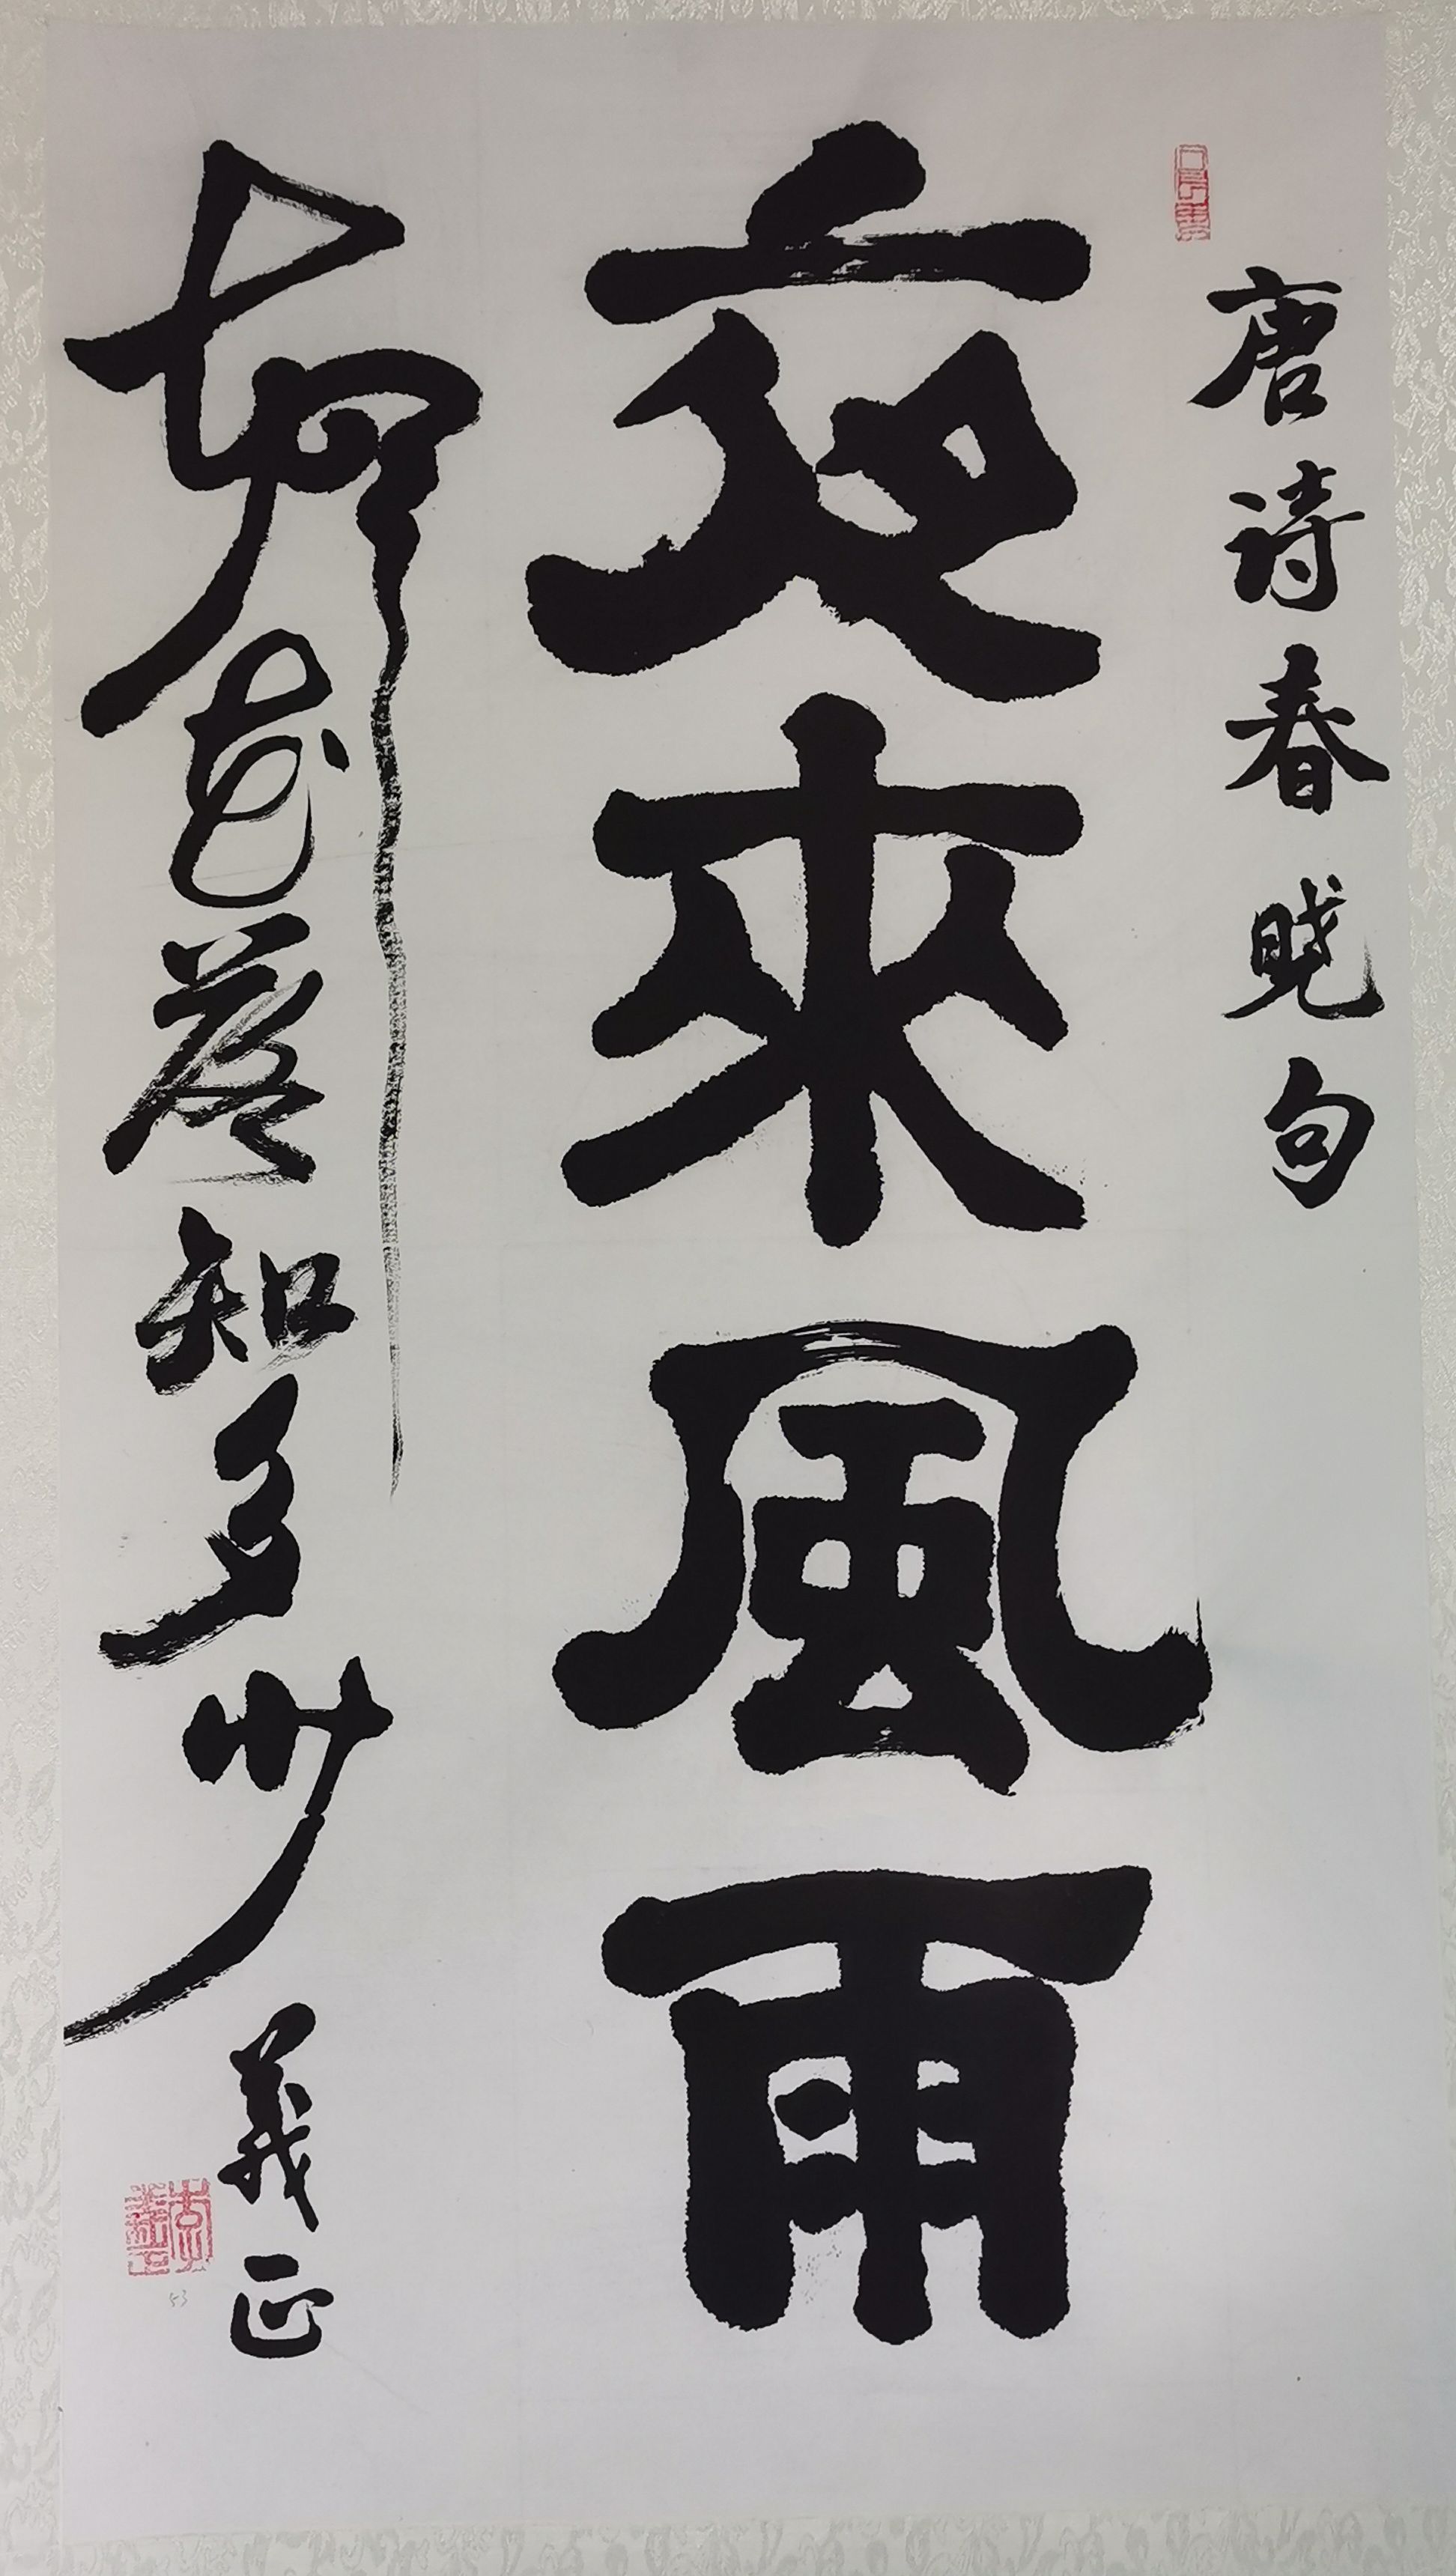 唐诗春晓句
夜來風雨
聲花落知多少
義正